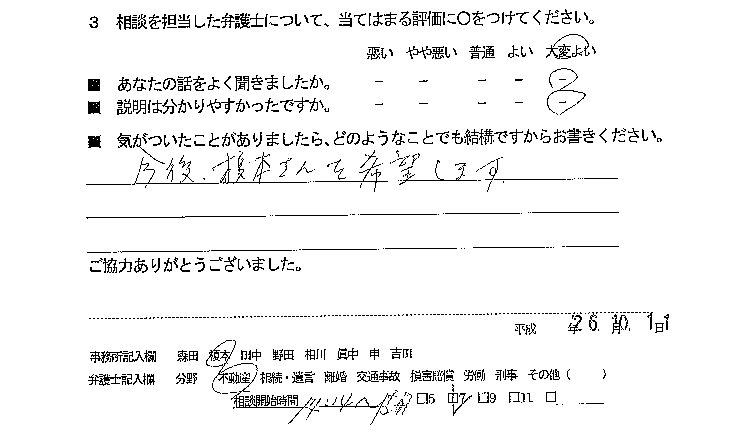 3 相談を担当した弁護士について、当てはまる評価に〇をつけてください。
悪い やや悪い 普通 よい 大変よい
■ あなたの話をよく聞きましたか。 － － － － －
■ 説明は分かりやすかったですか。 － － － － －
■ 気がついたことがありましたら、どのようなことでも結構ですからお書きください。
今後、榎本さんを希望します
ご協力ありがとうございました。
平成 年 26. 10. 月 1 日 1
事務所記入欄 森田 榎本 田中 野田 相川 眞中 申 吉田
弁護士記入欄 分野 不動産 相続・遺言 離婚 交通事故 損害賠償 労働 刑事 その他（ ）
相談開始時間 □5 □7 □9 □11 □